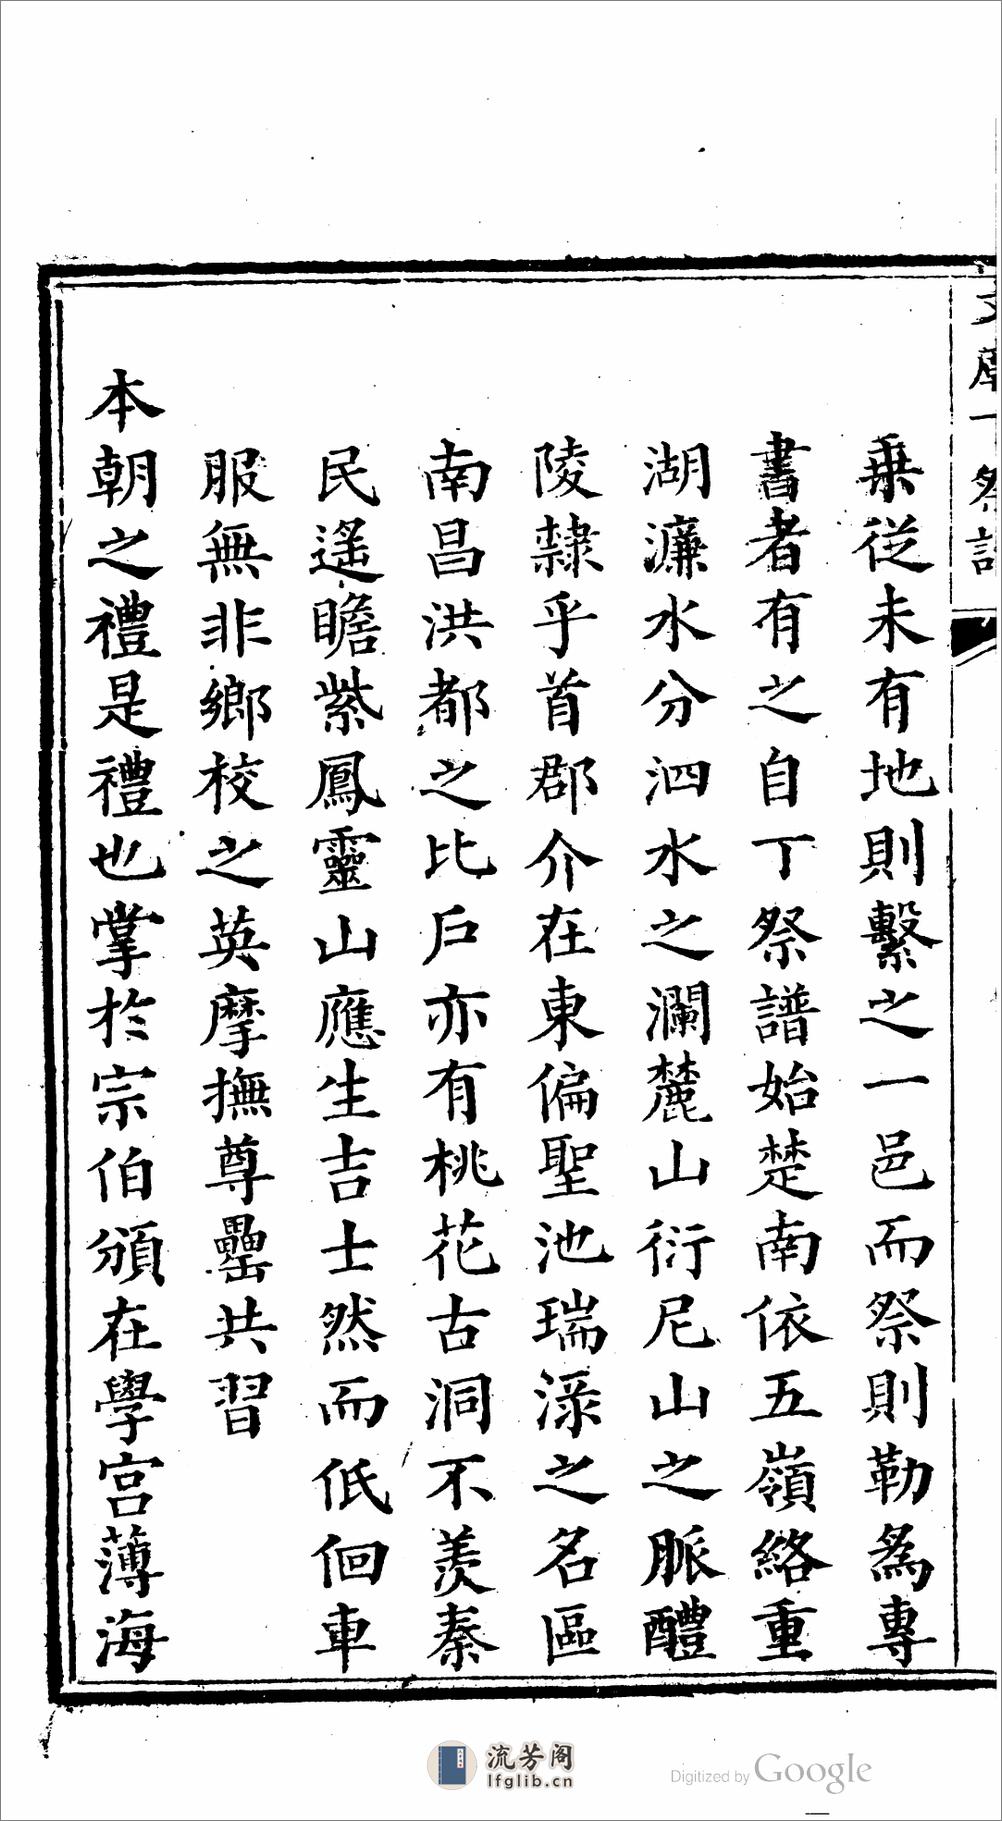 文廟丁祭譜
乗從未有地則繫之一邑而祭則勒為專
書者有之自丁祭譜始楚南依五嶺絡重
湖濂水分泗水之瀾麓山衍尼山之脈醴
陵隸乎首郡介在東偏聖池瑞渌之名區
南昌洪都之比戶亦有桃花古洞不羨秦
民遙瞻紫鳳靈山應生吉士然而低徊車
服無非鄉校之英摩撫尊罍共習
本朝之禮是禮也掌於宗伯頒在學宮薄海
流芳阁
lfglib.cn
Digitized by Google